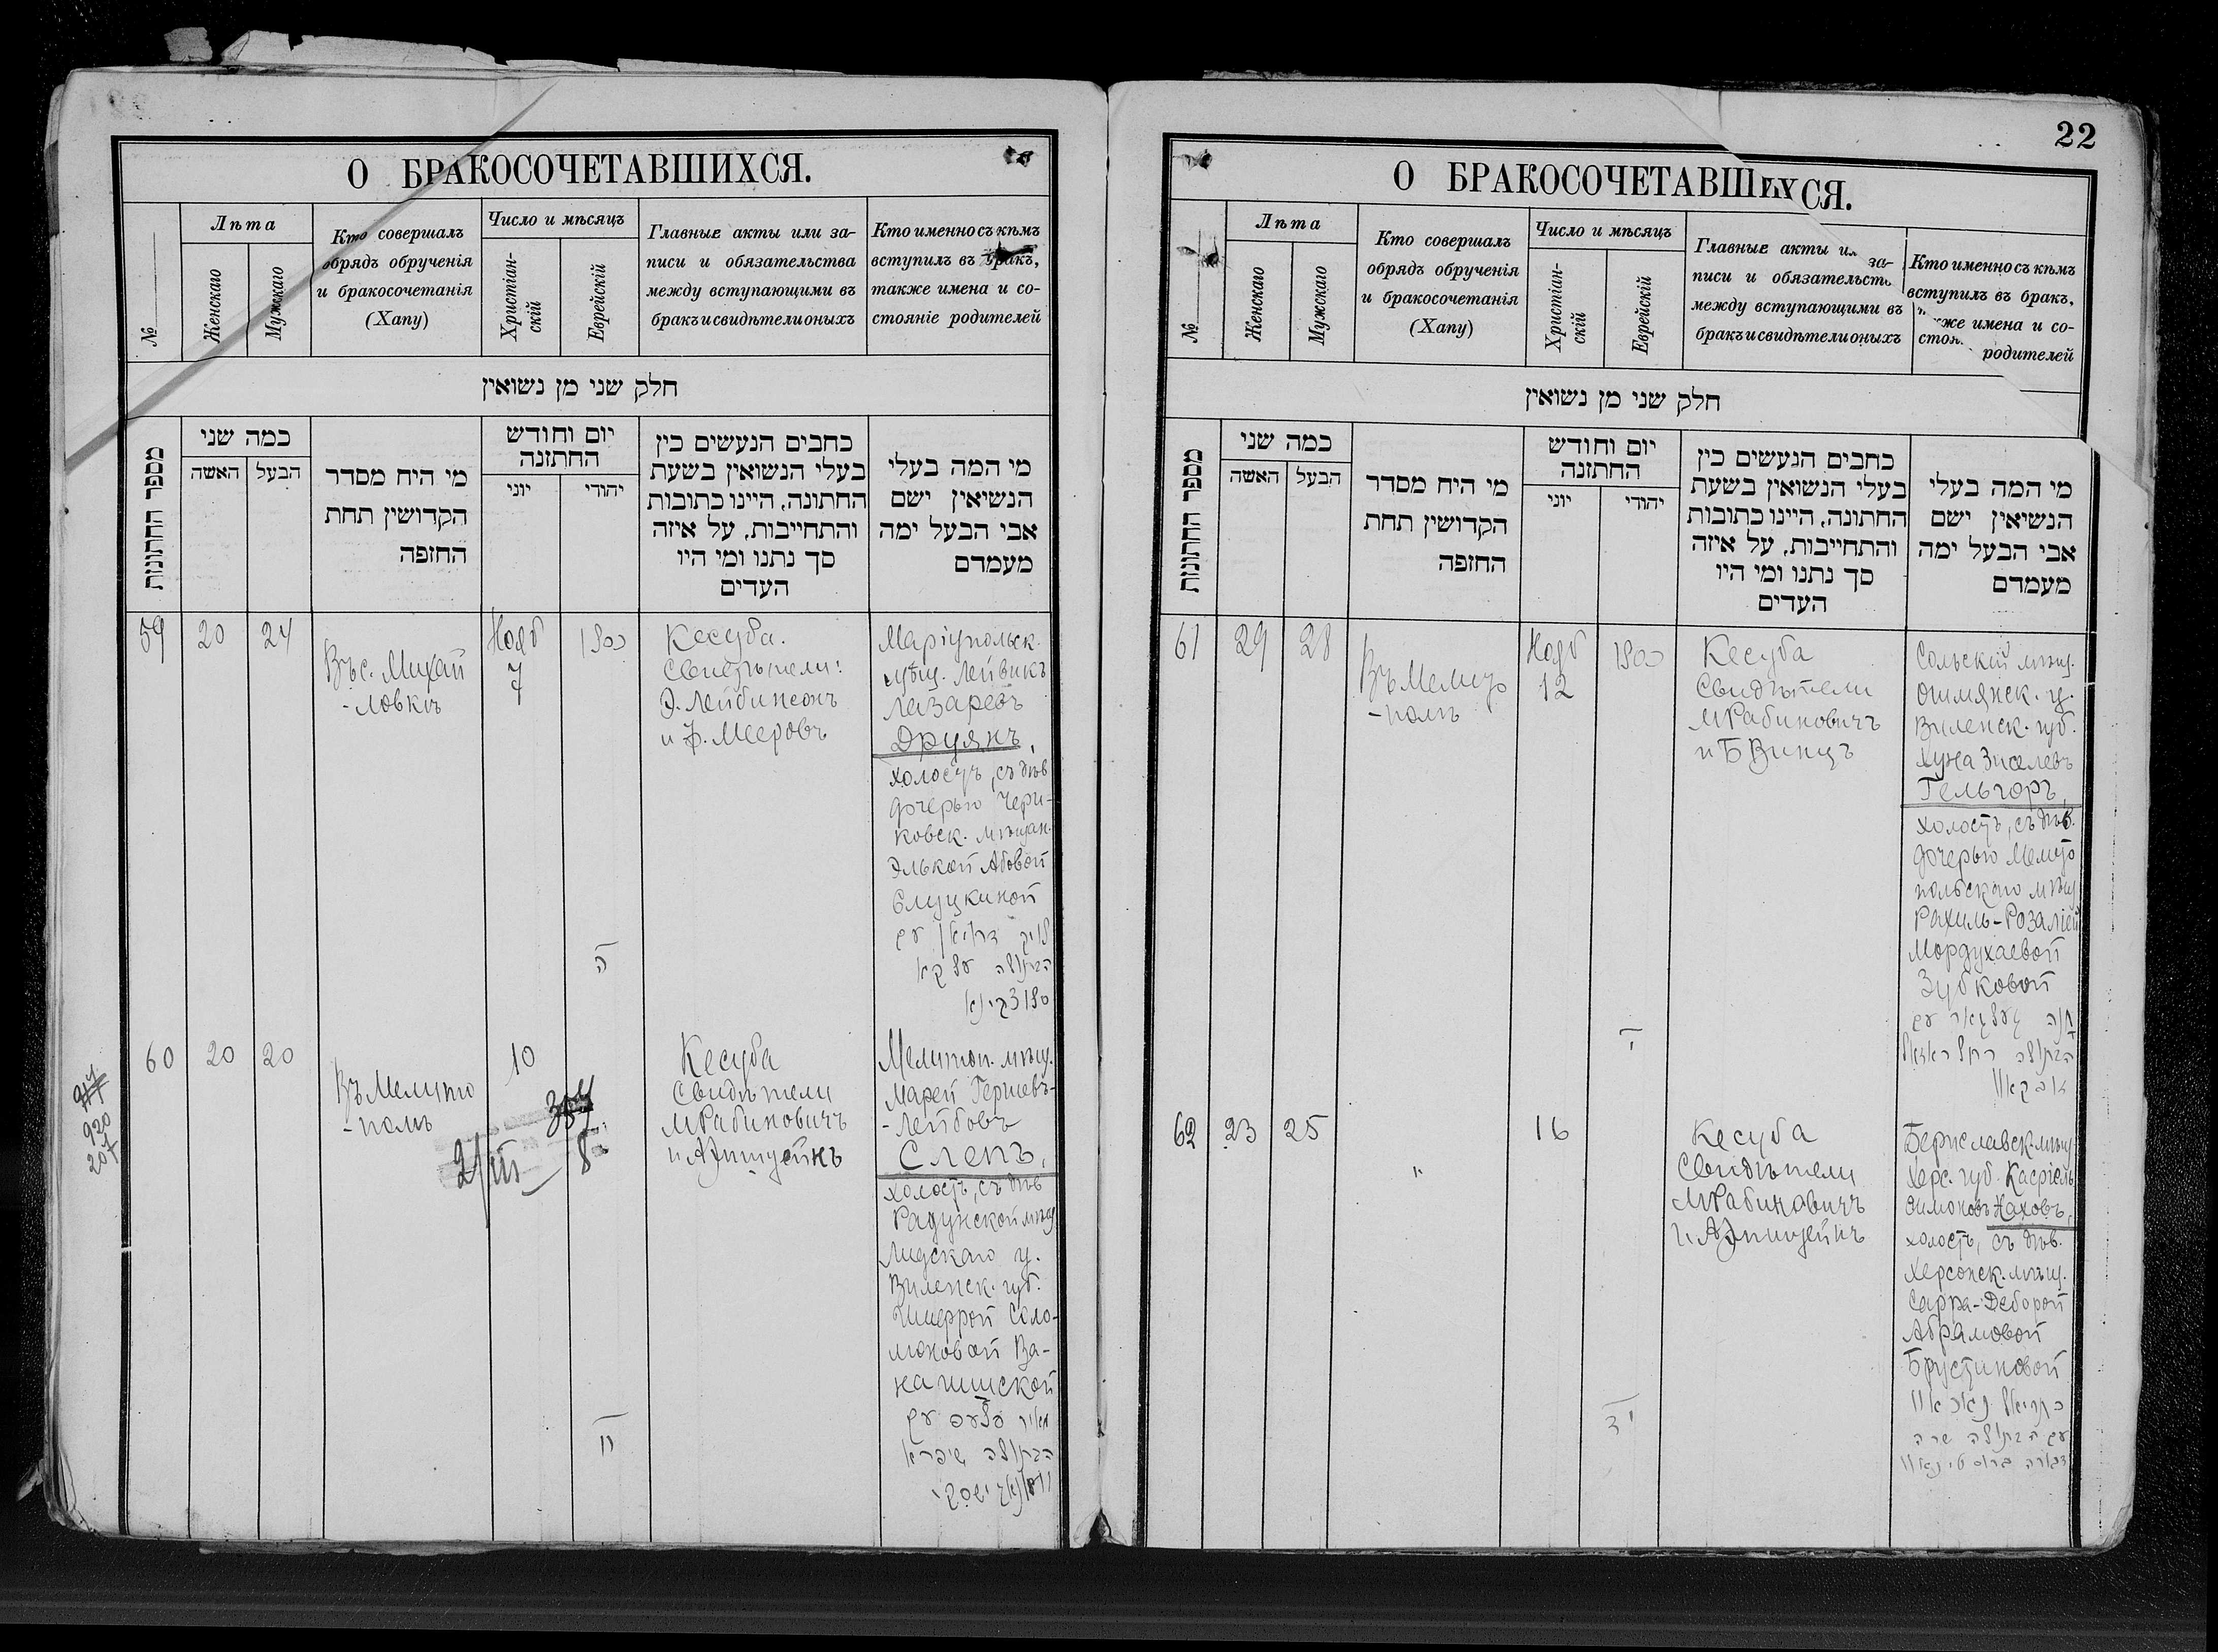 О БРАКОСОЧЕТАВШИХСЯ.
№
Лѣта
Женскаго
Мужскаго
Кто совершалъ
обрядъ обрученія
и бракосочетанія
(Хапу)
Число и мѣсяцъ
Христіан-
скій
Еврейскій
Главные акты или за-
писи и обязательства
между вступающими въ
бракъ и свидѣтели оныхъ
Кто именно съ кѣмъ
вступилъ въ бракъ,
также имена и со-
стояніе родителей
חלק שני מן נשואין
מספר החתונות
כמה שני
האשה
הבעל
מי היח מסדר
הקדושין תחת
החופה
יום וחודש
החתונה
יוני
יהודי
כתבים הנעשים בין
בעלי הנשואין בשעת
החתונה, היינו כתובות
והתחייבות, על איזה
סך נתנו ומי היו
העדים
מי המה בעלי
הנשיאין ישם
אבי הבעל ימה
מעמדם
59
20
24
Въ с. Михай
-ловкѣ
Нояб
7
1900
ה
Кесуба.
Свидѣтели:
Э. Лейбинсонъ
и Ф. Мееровъ
Маріупольск.
мѣщ. Лейвикъ
Лазаревъ
Друянъ,
холостъ, съ дѣв
дочерью Чери-
ковск. мѣщан.
Элькой Абовой
Слуцкиной
לויק דרויאן עם
הבתולה עלקא
סלוצקינא
60
20
20
Въ Мелито
-полѣ
10
ח
Кесуба
Свидѣтели
М Рабиновичъ
и А Эпштейнъ
Мелитоп. мѣщ.
Марей Гершевъ-
-Лейбовъ
Слепъ,
холостъ, съ дѣв
Радунской мѣщ
Лидскаго у.
Виленск. губ.
Шифрой Соло-
моновой Ва-
עם
הבתולה שיפרא
920
207
22
О БРАКОСОЧЕТАВШИХСЯ.
№
Лѣта
Женскаго
Мужскаго
Кто совершалъ
обрядъ обрученія
и бракосочетанія
(Хапу)
Число и мѣсяцъ
Христіан-
скій
Еврейскій
Главные акты и за-
писи и обязательств
между вступающими въ
бракъ и свидѣтели оныхъ
Кто именно съ кѣмъ
вступилъ въ бракъ,
же имена и со-
стоя родителей
חלק שני מן נשואין
מספר החתונות
כמה שני
האשה
הבעל
מי היח מסדר
הקדושין תחת
החופה
יום וחודש
החתונה
יוני
יהודי
כתבים הנעשים בין
בעלי הנשואין בשעת
החתונה, היינו כתובות
והתחייבות, על איזה
סך נתנו ומי היו
העדים
מי המה בעלי
הנשיאין ישם
אבי הבעל ימה
מעמדם
61
29
28
Въ Мелито
-полѣ
Нояб
12
1900
י
Кесуба
Свидѣтели
М Рабиновичъ
и Б Винцъ
Сольскій мѣщ.
Ошмянск. у.
Виленск. губ.
Хуна Зиселевъ
Гельгоръ,
холостъ, съ дѣв.
дочерью Мелито
польскаго мѣщ
Рахиль-Розаліей
Мордухаевой
Зубковой
חנה געלגאר עם
הבתולה
62
23
25
"
16
יד
Кесуба
Свидѣтели
М Рабиновичъ
и А Эпштейнъ
Бериславск. мѣщ
Херс. губ. Касріель
Симоновъ Наховъ,
холостъ, съ дѣв.
Херсонск. мѣщ.
Сарра-Деборой
Абрамовой
Брустиновой
עם הבתולה שרה
דבורה ברוסטינאוו